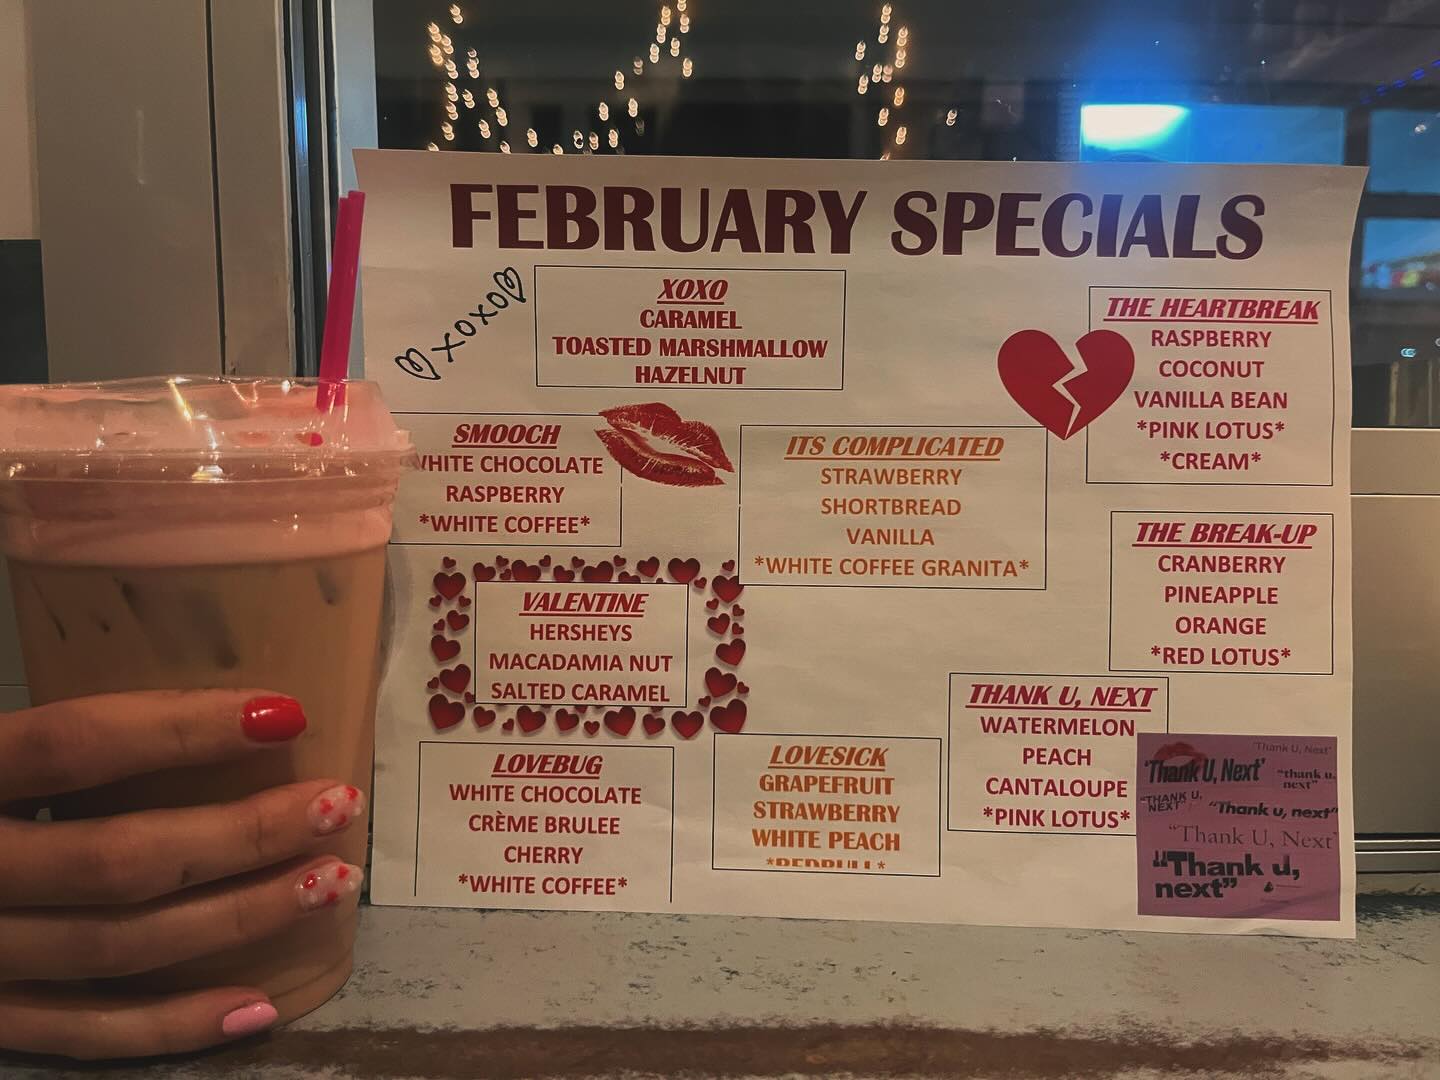 FEBRUARY SPECIALS
xoxo
XOXO
CARAMEL
TOASTED MARSHMALLOW
HAZELNUT
THE HEARTBREAK
RASPBERRY
COCONUT
VANILLA BEAN
*PINK LOTUS*
*CREAM*
SMOOCH
WHITE CHOCOLATE
RASPBERRY
*WHITE COFFEE*
ITS COMPLICATED
STRAWBERRY
SHORTBREAD
VANILLA
*WHITE COFFEE GRANITA*
THE BREAK-UP
CRANBERRY
PINEAPPLE
ORANGE
*RED LOTUS*
VALENTINE
HERSHEYS
MACADAMIA NUT
SALTED CARAMEL
THANK U, NEXT
WATERMELON
PEACH
CANTALOUPE
*PINK LOTUS*
LOVEBUG
WHITE CHOCOLATE
CRÈME BRULEE
CHERRY
*WHITE COFFEE*
LOVESICK
GRAPEFRUIT
STRAWBERRY
WHITE PEACH
*REDBULL*
"Thank U, Next"
'Thank U, Next'
"thank u,
next"
"THANK U,
NEXT"
"Thank u, next"
"Thank U, Next'
"Thank u,
next"